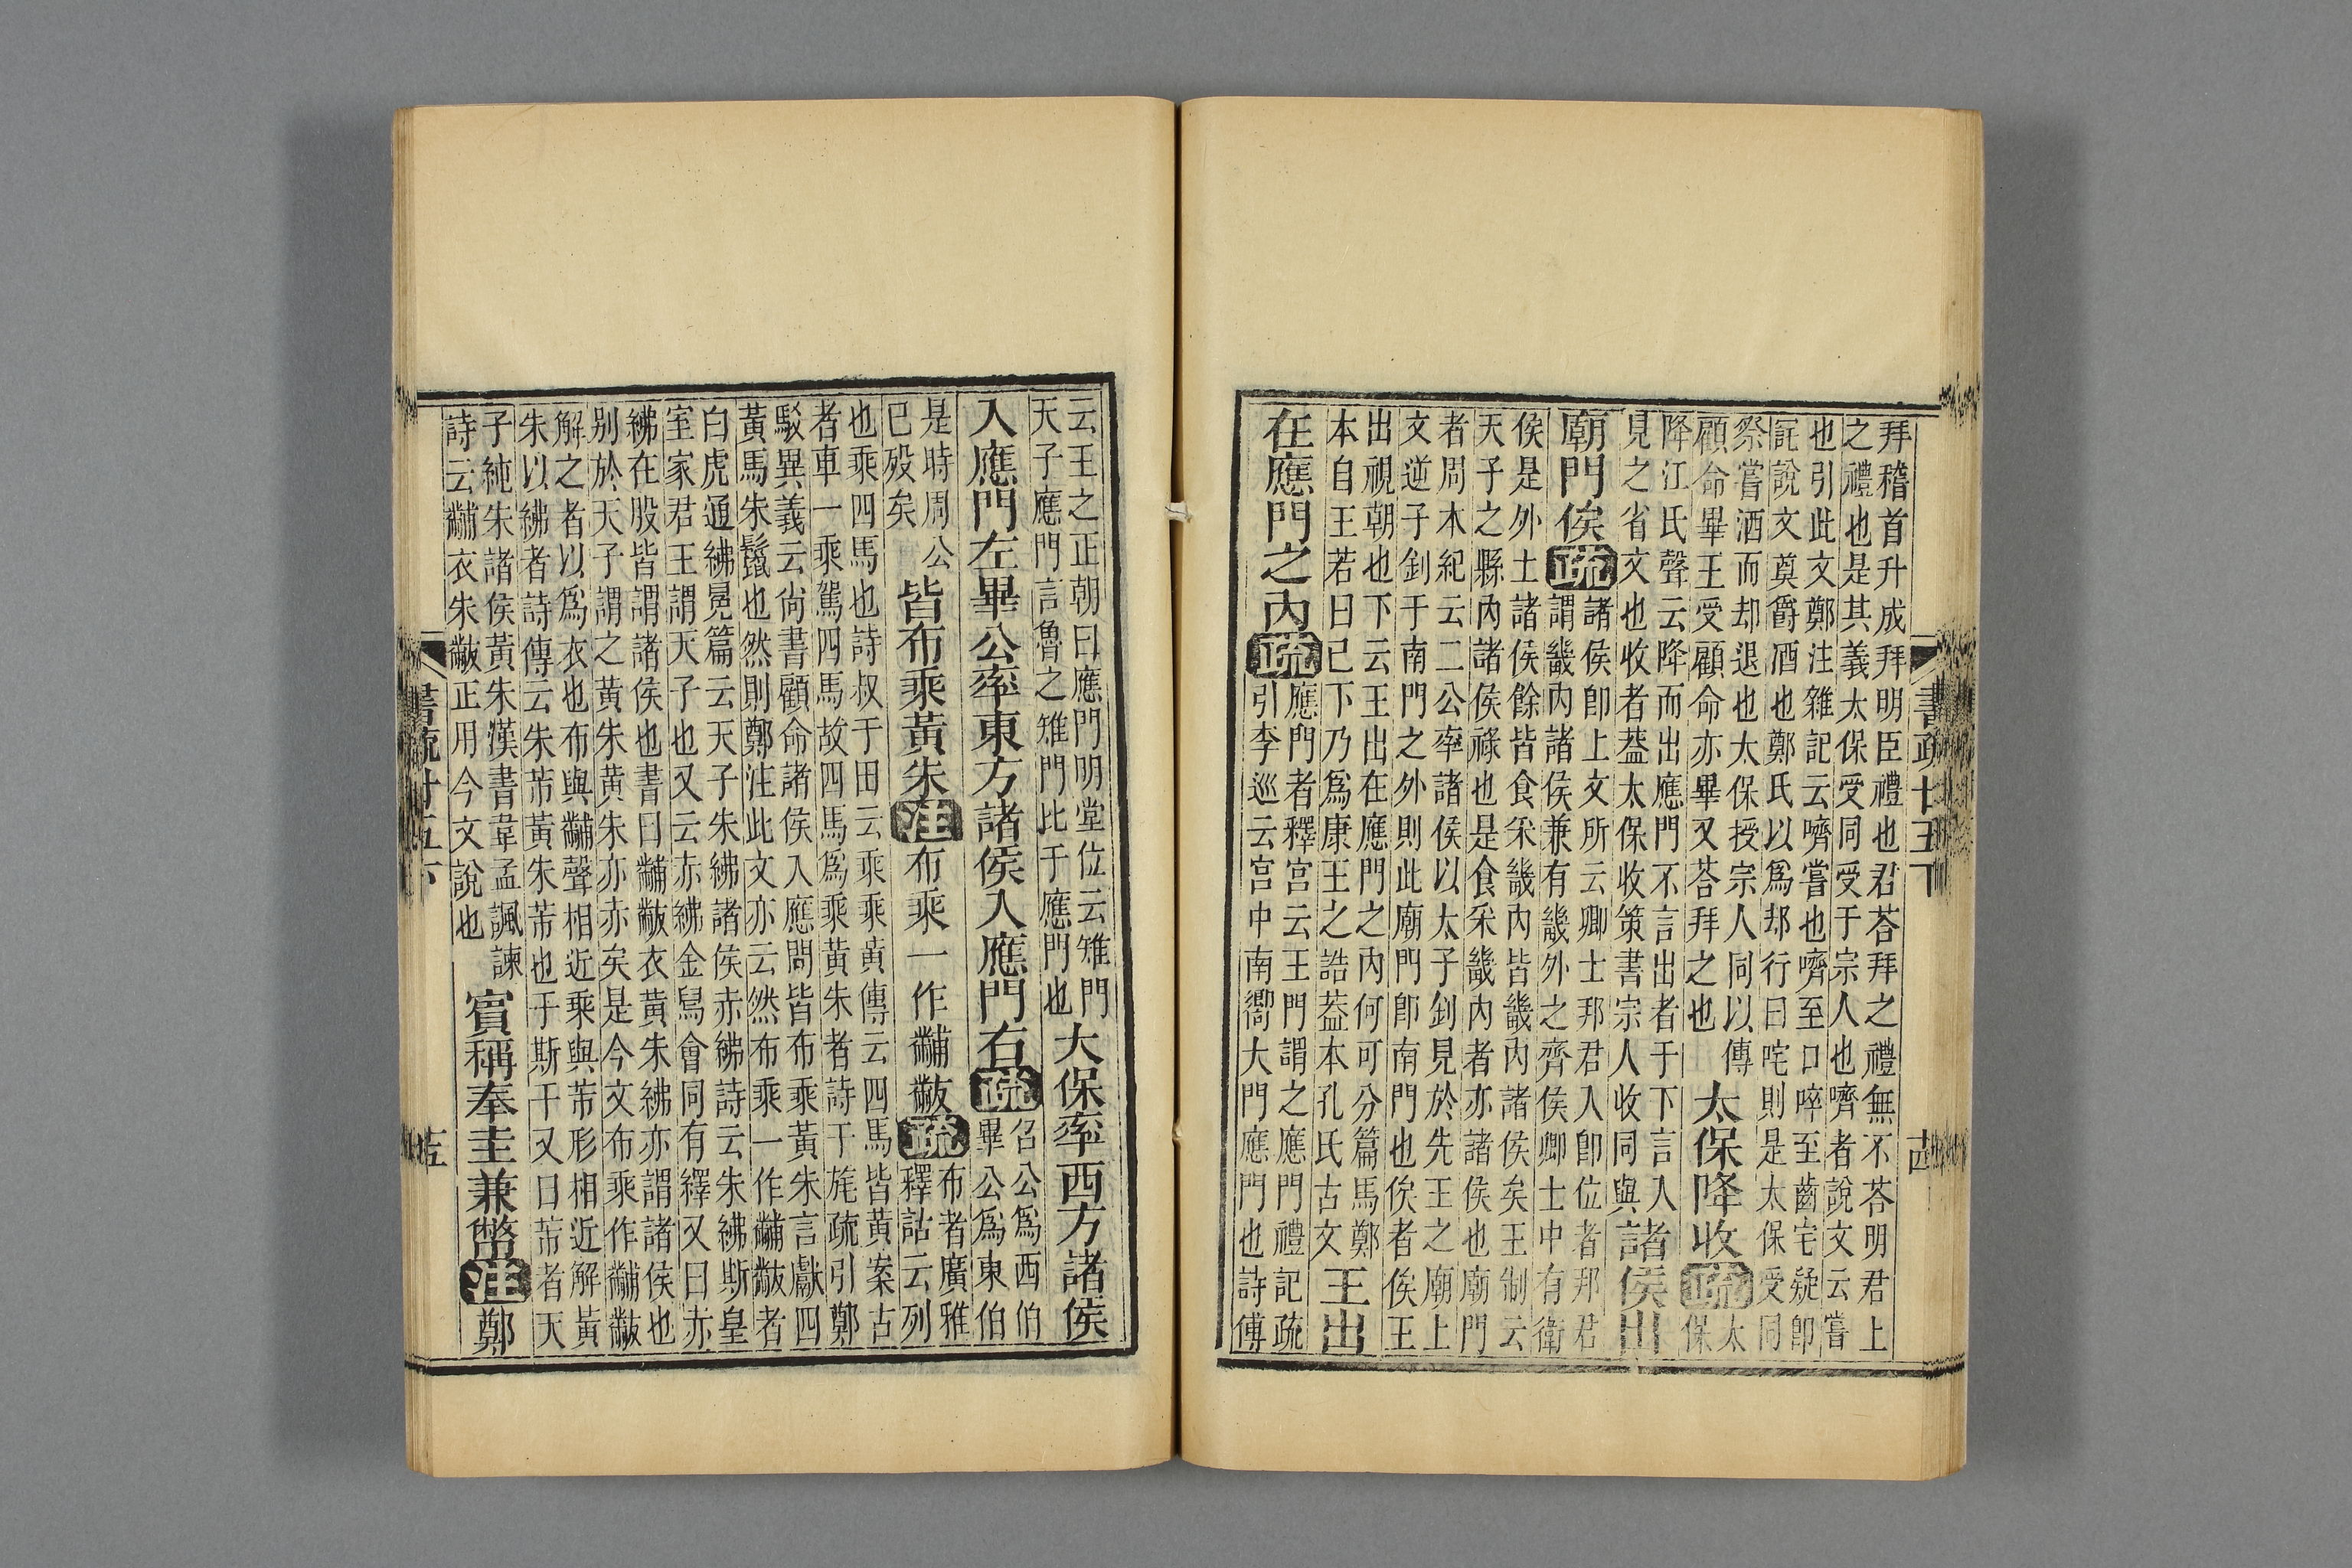 書疏廿五下
拜稽首升成拜明臣禮也君荅拜之禮無不荅明君上
之禮也是其義太保受同受于宗人也嚌者說文云嘗
也引此文鄭注雜記云嚌嘗也嚌至口啐至齒宅疑卽
詫說文奠爵酒也鄭氏以爲却行曰咤則是太保受同
祭嘗酒而却退也太保授宗人同以傳
顧命畢王受顧命亦畢又荅拜之也
太保降收疏太
保
降江氏聲云降而出應門不言出者于下言入
見之省文也收者葢太保收策書宗人收同與
諸侯出
廟門俟疏
諸侯卽上文所云卿士邦君入卽位者邦君
謂畿内諸侯兼有畿外之齊侯卿士中有衛
侯是外土諸侯餘皆食采畿内皆畿内諸侯矣王制云
天子之縣内諸侯祿也是食采畿内者亦諸侯也廟門
者周木紀云二公率諸侯以太子釗見於先王之廟上
文逆子釗于南門之外則此廟門卽南門也俟者俟王
出視朝也下云王出在應門之内何可分篇馬鄭
本自王若曰已下乃爲康王之誥葢本孔氏古文
王出
在應門之内疏
應門者釋宫云王門謂之應門禮記疏
引李巡云宫中南嚮大門應門也詩傳
云王之正朝曰應門明堂位云雉門
天子應門言魯之雉門比于應門也
大保率西方諸侯
入應門左畢公率東方諸侯入應門右疏
召公爲西伯
畢公爲東伯
是時周公
已殁矣
皆布乘黃朱注布乘一作黼黻疏
布者廣雅
釋詁云列
也乘四馬也詩叔于田云乘乘黃傳云四馬皆黃案古
者車一乘駕四馬故四馬爲乘黃朱者詩干旄疏引鄭
駁異義云尚書顧命諸侯入應門皆布乘黃朱言獻四
黃馬朱鬛也然則鄭注此文亦云然布乘一作黼黻者
白虎通紼冕篇云天子朱紼諸侯赤紼詩云朱紼斯皇
室家君王謂天子也又云赤紼金舄會同有繹又曰赤
紼在股皆謂諸侯也書曰黼黻衣黃朱紼亦謂諸侯也
别於天子謂之黃朱黃朱亦赤矣是今文布乘作黼黻
解之者以爲衣也布與黼聲相近乘與芾形相近解黃
朱以紼者詩傳云朱芾黃朱芾也于斯干又曰芾者天
子純朱諸侯黃朱漢書韋孟諷諫
詩云黼衣朱黻正用今文說也
賓稱奉圭兼幣注鄭
書疏廿五下